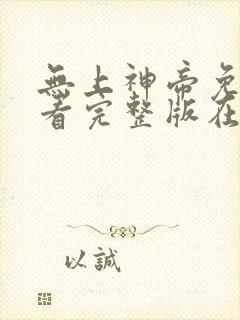 無上神帝免
看完整版在
以誠